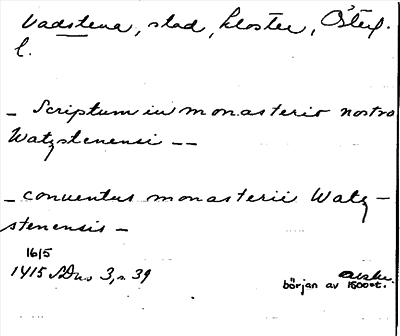 Vadstena, stad, kloster, Österg.
l.
– Scriptum in monasterio nostro
Watzstenensi – –
– conventus monasterii Watz–
stenensis –
16/5
1415 SDns 3, s. 39
avskr.
början av 1500-t.